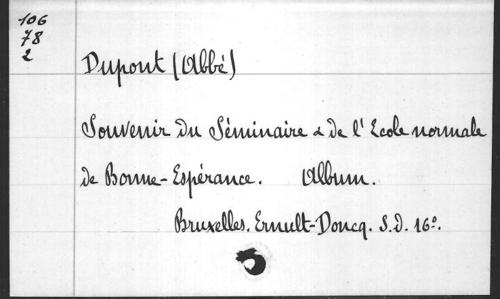 106
78
2
Dupont (Abbé)
Souvenir du Séminaire & de l'Ecole normale
de Bonne-Espérance. Album.
Bruxelles. Ernult-Doncq. S.d. 16º.